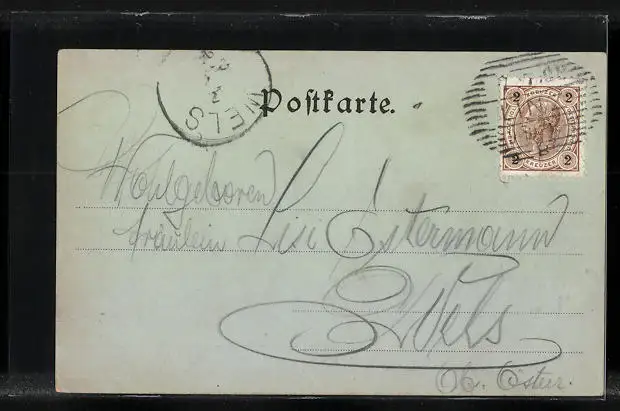 WELS
Postkarte.
2 KREUZER 2
2 KREUZER 2
Wohlgeboren
Fräulein Lisi Estermann
Wels
Ob. Österr.